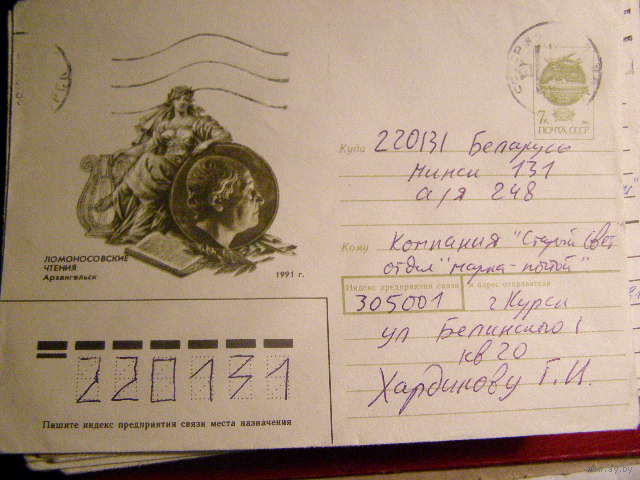 7к
ПОЧТА СССР
Куда 220131 Беларусь
Минск 131
а/я 248
Кому Компания "Старый Свет
отдел "марка-почтой"
ЛОМОНОСОВСКИЕ
ЧТЕНИЯ
Архангельск
1991 г.
Индекс предприятия связи и адрес отправителя
305001 г Курск
ул Белинского 1
кв 20
Хардикову Г.И.
220131
Пишите индекс предприятия связи места назначения
www.ay.by